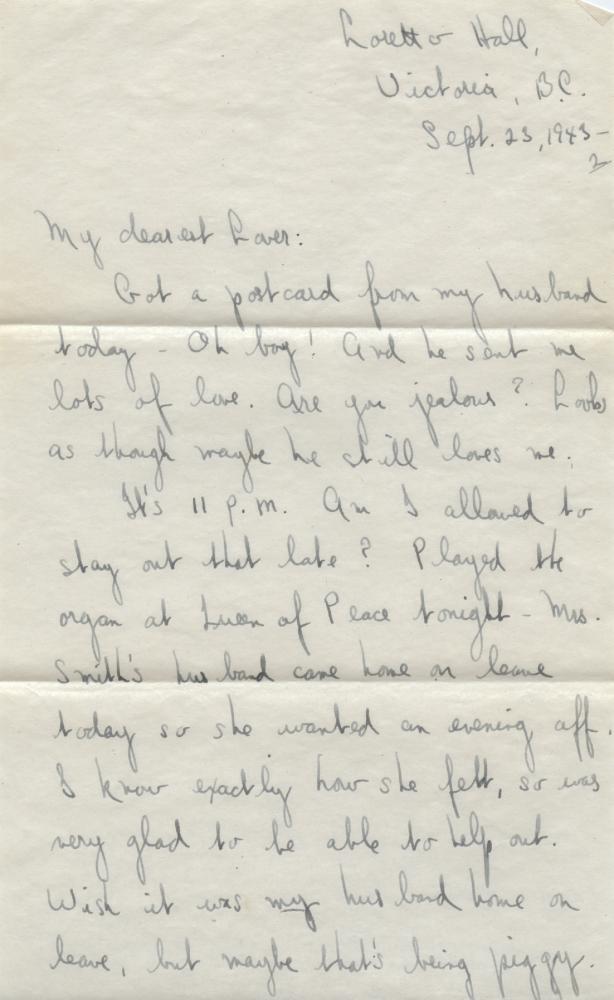 Loretto Hall,
Victoria, B.C.
Sept. 23, 1943-
2
My dearest Lover:
Got a postcard from my husband
today - Oh boy! And he sent me
lots of love. Are you jealous? Looks
as though maybe he still loves me.
It's 11 p.m. Am I allowed to
stay out that late? Played the
organ at Queen of Peace tonight - Mrs.
Smith's husband came home on leave
today so she wanted an evening off.
I know exactly how she felt, so was
very glad to be able to help out.
Wish it was my husband home on
leave, but maybe that's being piggy.